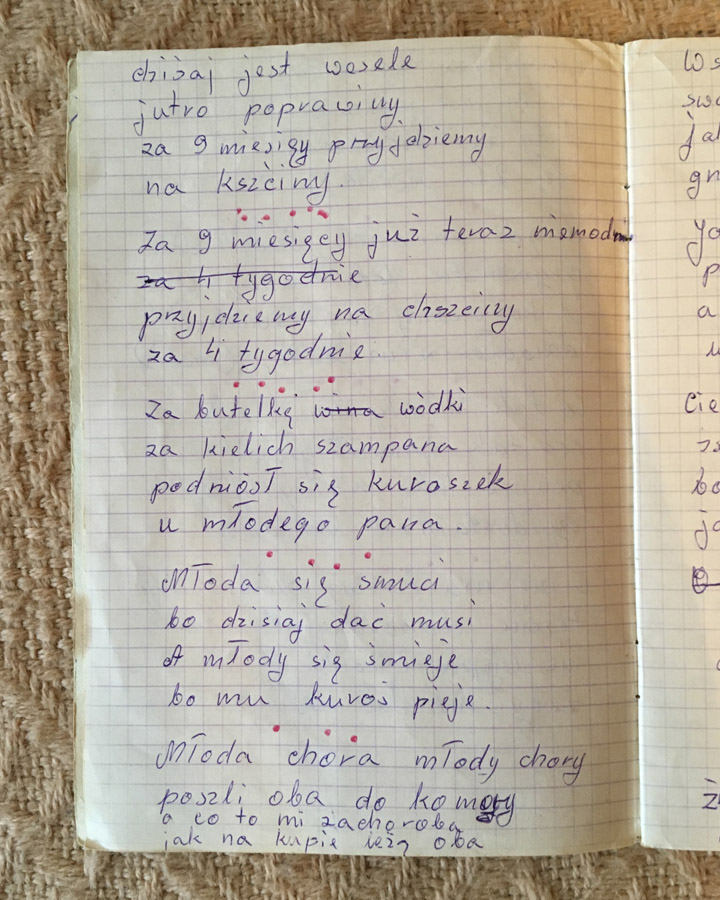 dzisaj jest wesele
jutro poprawiny
za 9 miesięy przyjdziemy
na kszciny.
Za 9 miesięcy już teraz niemodn
za 4 tygodnie
przyjdziemy na chszciny
za 4 tygodnie.
Za butelkę wina wòdki
za kielich szampana
podniósł się kuraszek
u młodego pana.
Młoda się smuci
bo dzisiaj dać musi
A młody się śmieje
bo mu kuroś pieje.
Młoda chora młody chory
poszli oba do komory
a co to mi zachoroba
jak na kupie leżą oba
Ws
swo
ja
gn
Ja
p
a
u
Cie
bo
ja